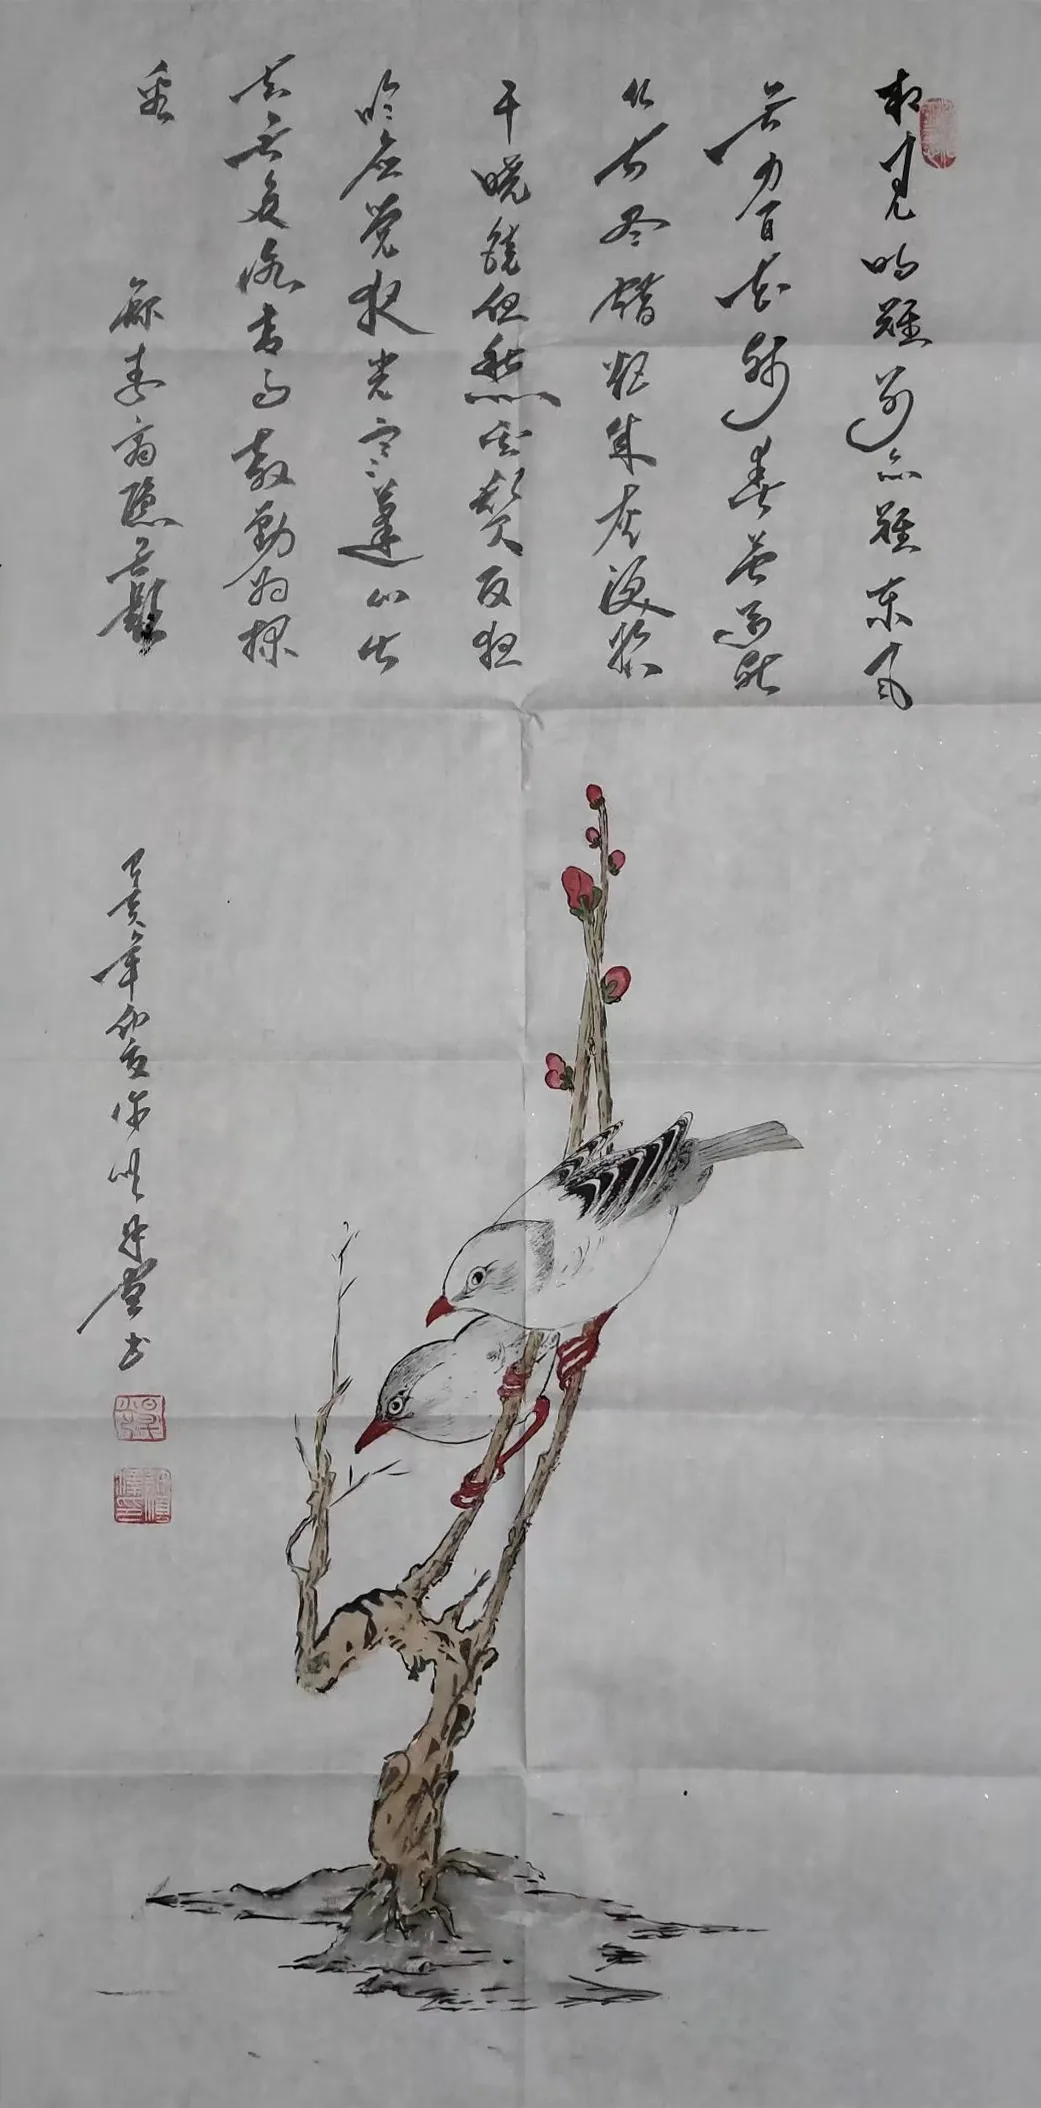 相见时难别亦难东风
无力百花残春蚕到死
丝方尽蜡炬成灰泪始
干晓镜但愁云鬓改夜
吟应觉夜光寒蓬山此
去无多路青鸟殷勤为探
看 录李商隐无题
己亥年仲夏 堂书